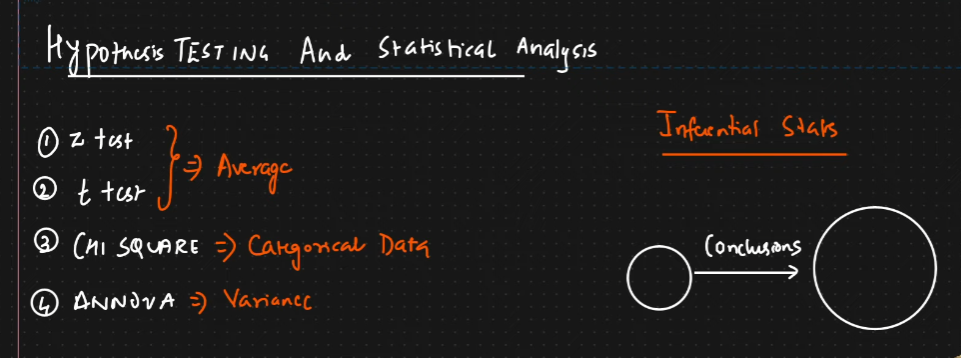 Hypothesis TESTING And Statistical Analysis
① z test
② t test
} ⇒ Average
③ CHI SQUARE ⇒ Categorical Data
④ ANNOVA ⇒ Variance
Inferential Stats
Conclusions